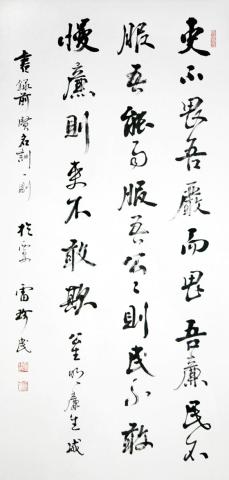 吏不畏吾嚴而畏吾廉民不
服吾能而服吾公々則民不敢
慢廉則吏不敢欺公生明廉生威
書錄前賢名訓一則於京雷民